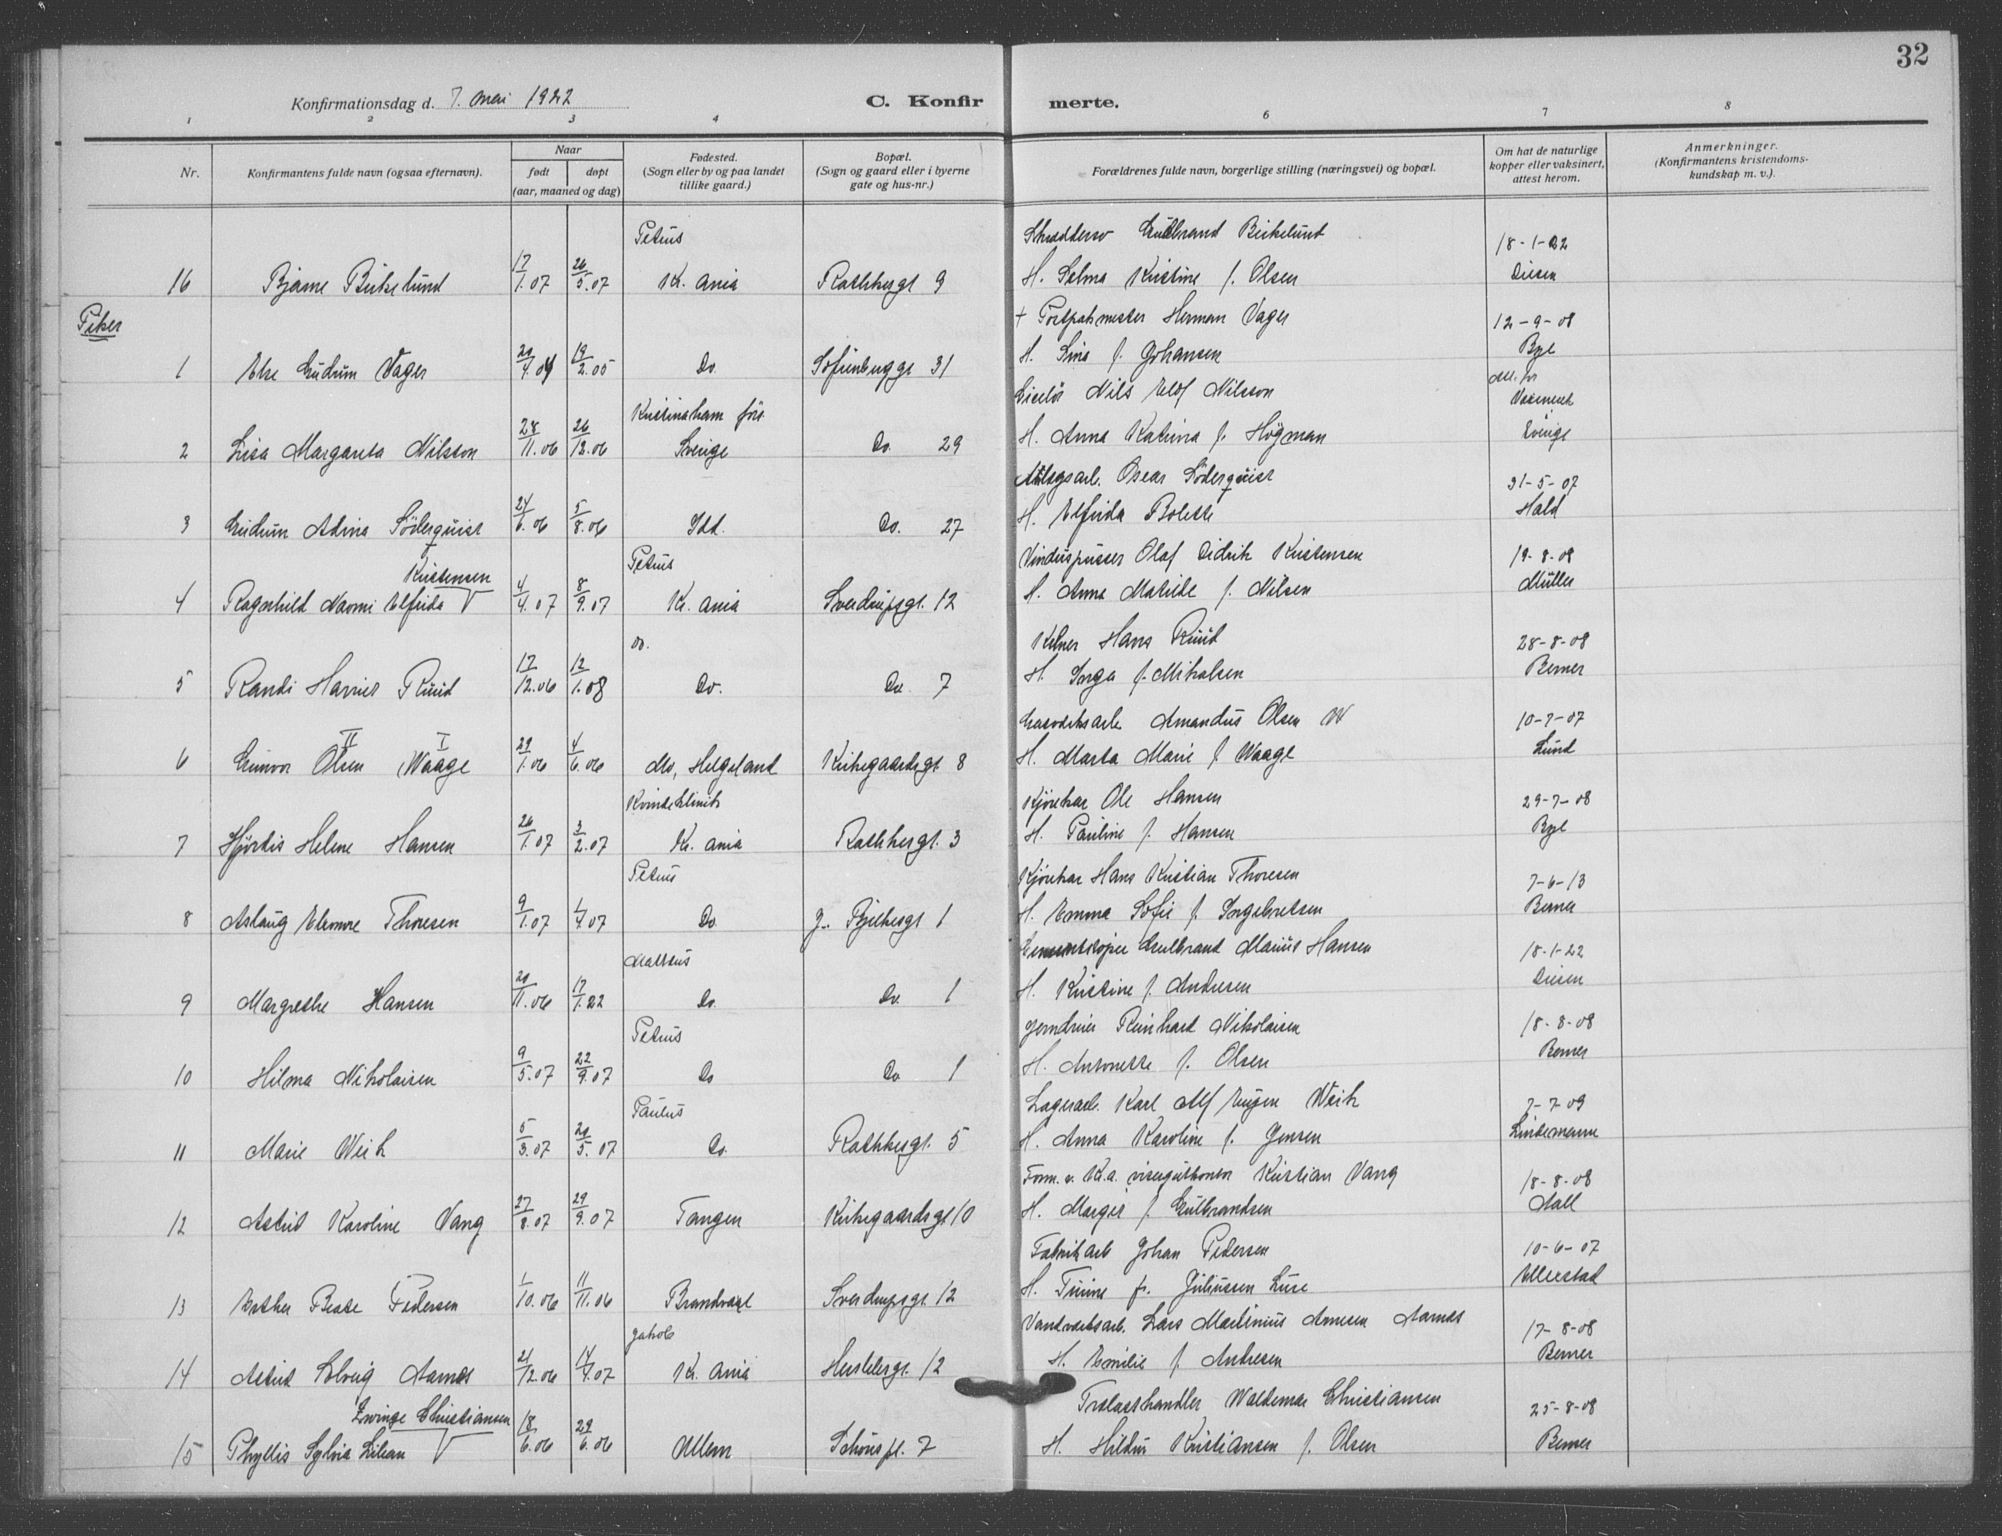 32
Konfirmationsdag d. 7. mai 1922 C. Konfir merte.
1 2 3 4 6 7 8
Nr. Konfirmantens fulde navn (ogsaa efternavn). Naar født døpt (aar, maaned og dag) Fødested. (Sogn eller by og paa landet tillike gaard.) Bopæl. (Sogn og gaard eller i byerne gate og hus-nr.) Forældrenes fulde navn, borgerlige stilling (næringsvei) og bopæl. Om hat de naturlige kopper eller vaksinert, attest herom. Anmerkninger. (Konfirmantens kristendomskundskap m. v.).
Petrus Gulbrand Birkelund 18-1-22
16 Bjarne Birkelund 17/1.07 26/5.07 Kr. ania Rathkesgt 9 H. Selma Kristine f. Olsen Diesen
Piker
+ Herman Vager 12-9-08
1 Else Gudrun Vager 20/4.04 19/2.05 Do. Sofienberggt 31 H. f. Johansen
Kristineham förs. Nils Elof Nilsson
2 Lisa Margareta Nilsson 28/11.06 26/12.06 Sverige Do. 29 H. Anna Katrina f. Högman Sverige
Oscar Söderquist 31-5-07
3 Gudrun Adina Söderquist 24/6.06 5/8.06 Idd. Do. 27 H. Elfrida Bolette Hald
Kristensen Petrus Vinduspusser Olaf Didrik Kristensen 19-8-08
4 Ragnhild Naomi Elfrida V 4/4.07 8/9.07 Kr. ania Sverdrupsgt. 12 H. Anna Matilde f. Nilsen Müller
do. Kelner Hans Ruud 28-8-08
5 Randi Harriet Ruud 17/12.06 12/1.08 Do. Do. 7 H. Inga f. Mikalsen Berner
Gasverksarb Amandus Olsen W 10-7-07
6 Gunvor Olsen II Waage I 29/1.06 4/6.06 Mo, Helgeland Kirkegaardsgt. 8 H. Marta Marie f. Waage Lund
Kvindeklinik Kjørekar Ole Hansen 29-7-08
7 Hjørdis Helene Hansen 26/1.07 3/2.07 Kr. ania Rathkesgt. 3 H. Pauline f. Hansen
Petrus Kjørekar Hans Kristian Thoresen 7-6-13
8 Aslaug Eleonore Thoresen 9/1.07 1/4.07 Do. 1 H. Emma Sofie f. Ingebretsen Berner
Matteus Gulbrand Marius Hansen 18-1-22
9 Margrethe Hansen 20/11.06 17/1.22 Do. Do. 1 H. Kristine f. Andresen Diesen
Petrus Reinhard Nikolaisen 18-8-08
10 Hilma Nikolaisen 9/5.07 22/9.07 Do Do 1 H. Antonette f. Olsen Berner
Paulus Lagerarb. Karl Alf Eugen Weik 7-7-09
11 Marie Weik 5/3.07 20/5.07 Do. Rathkesgt. 5 H. Anna Karoline f. Jensen Lindemann
Form. v. Kr.a. visergutkontor Kristian Vang 18-8-08
12 Astrid Karoline Vang 27/8.07 29/9.07 Tangen Kirkegaardsgt 10 H. Margit f. Gulbrandsen Aall
Fabrikarb Johan Pedersen 10-6-07
13 Esther Beate Pedersen 1/10.06 11/11.06 Brandval Sverdrupsgt. 12 H. f. Juliussen Ullerstad
Jakob Vandverksarb. Lars Martinius Arnesen Aarnes 17-8-08
14 Astrid Solveig Aarnes 21/12.06 14/4.07 Kr. ania Herslebsgt. 12 H. Emilie f. Andresen Berner
Zwinge Christiansen Trælasthandler Waldemar Christiansen 25-8-08
15 Phyllis Sylvia Lilian V 18/6.06 29/6.06 Schous pl. 7 H. Hildur Kristiansen f. Olsen Berner